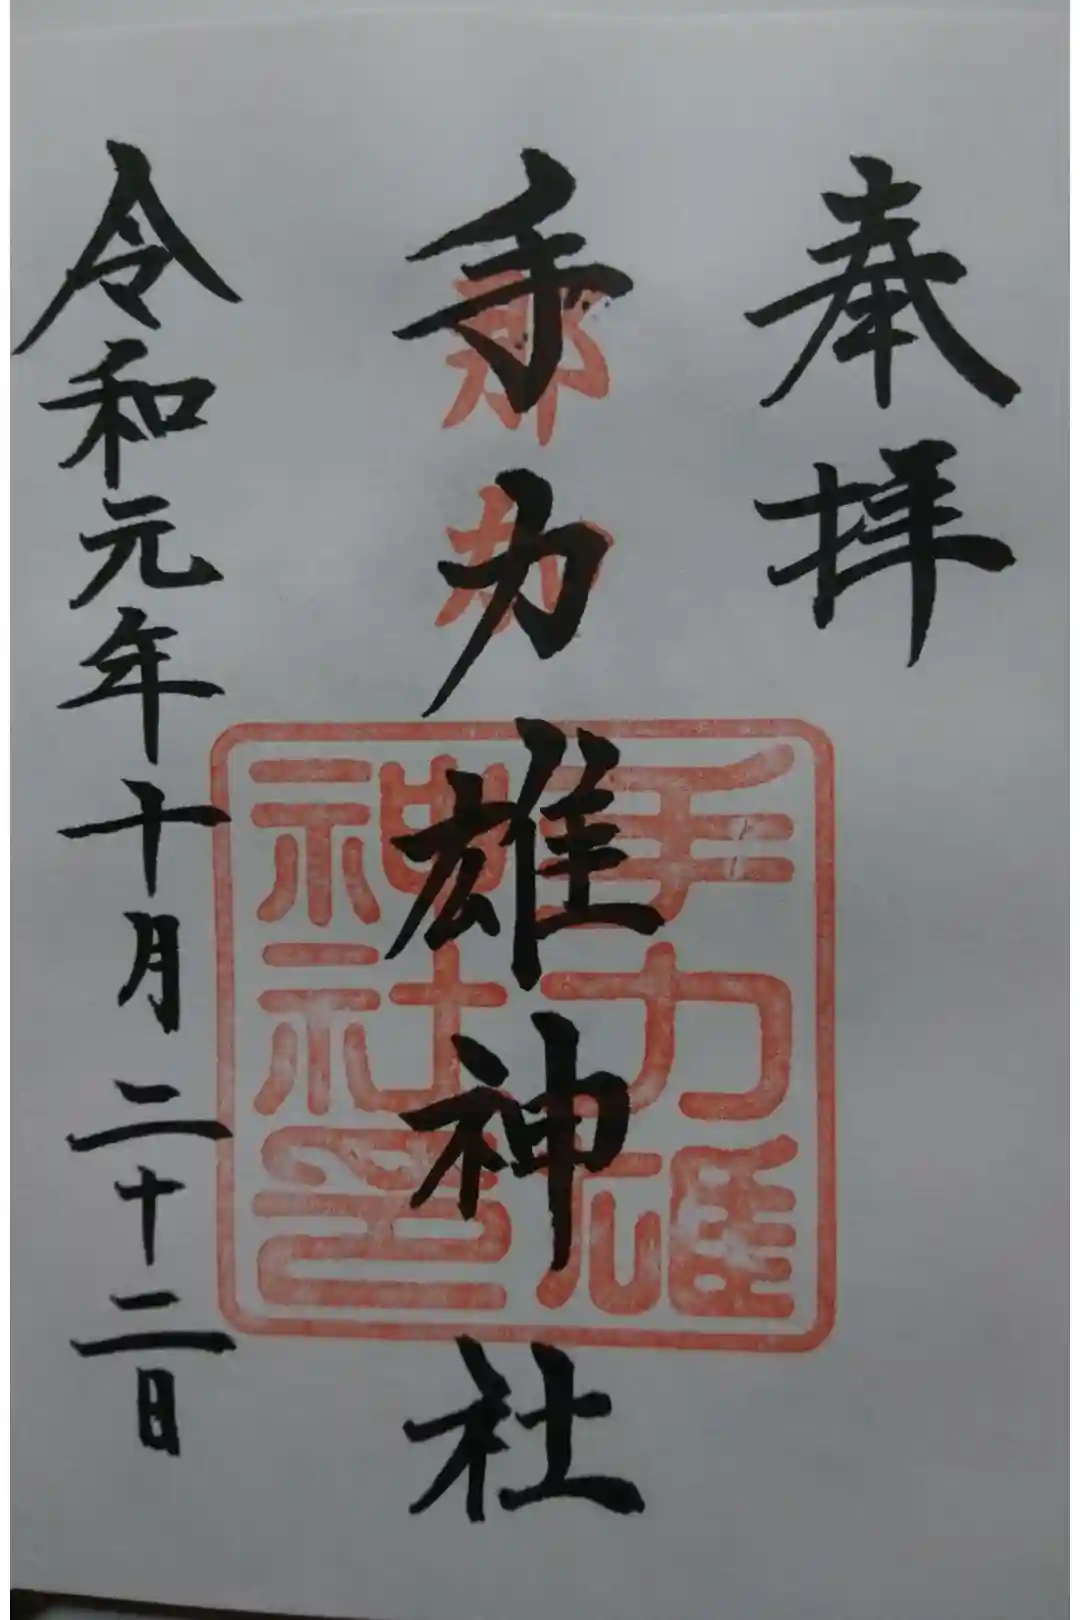 奉拝
那加
手力雄神社
手力雄
神社印
令和元年十月二十二日